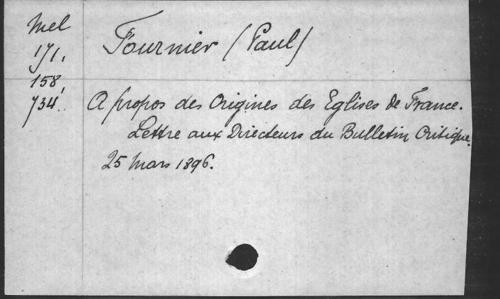 Mel
171,
158,
734.
Fournier (Paul)
A propos des Origines des Eglises de France.
Lettre aux Directeurs du Bulletin Critique.
25 Mars 1896.